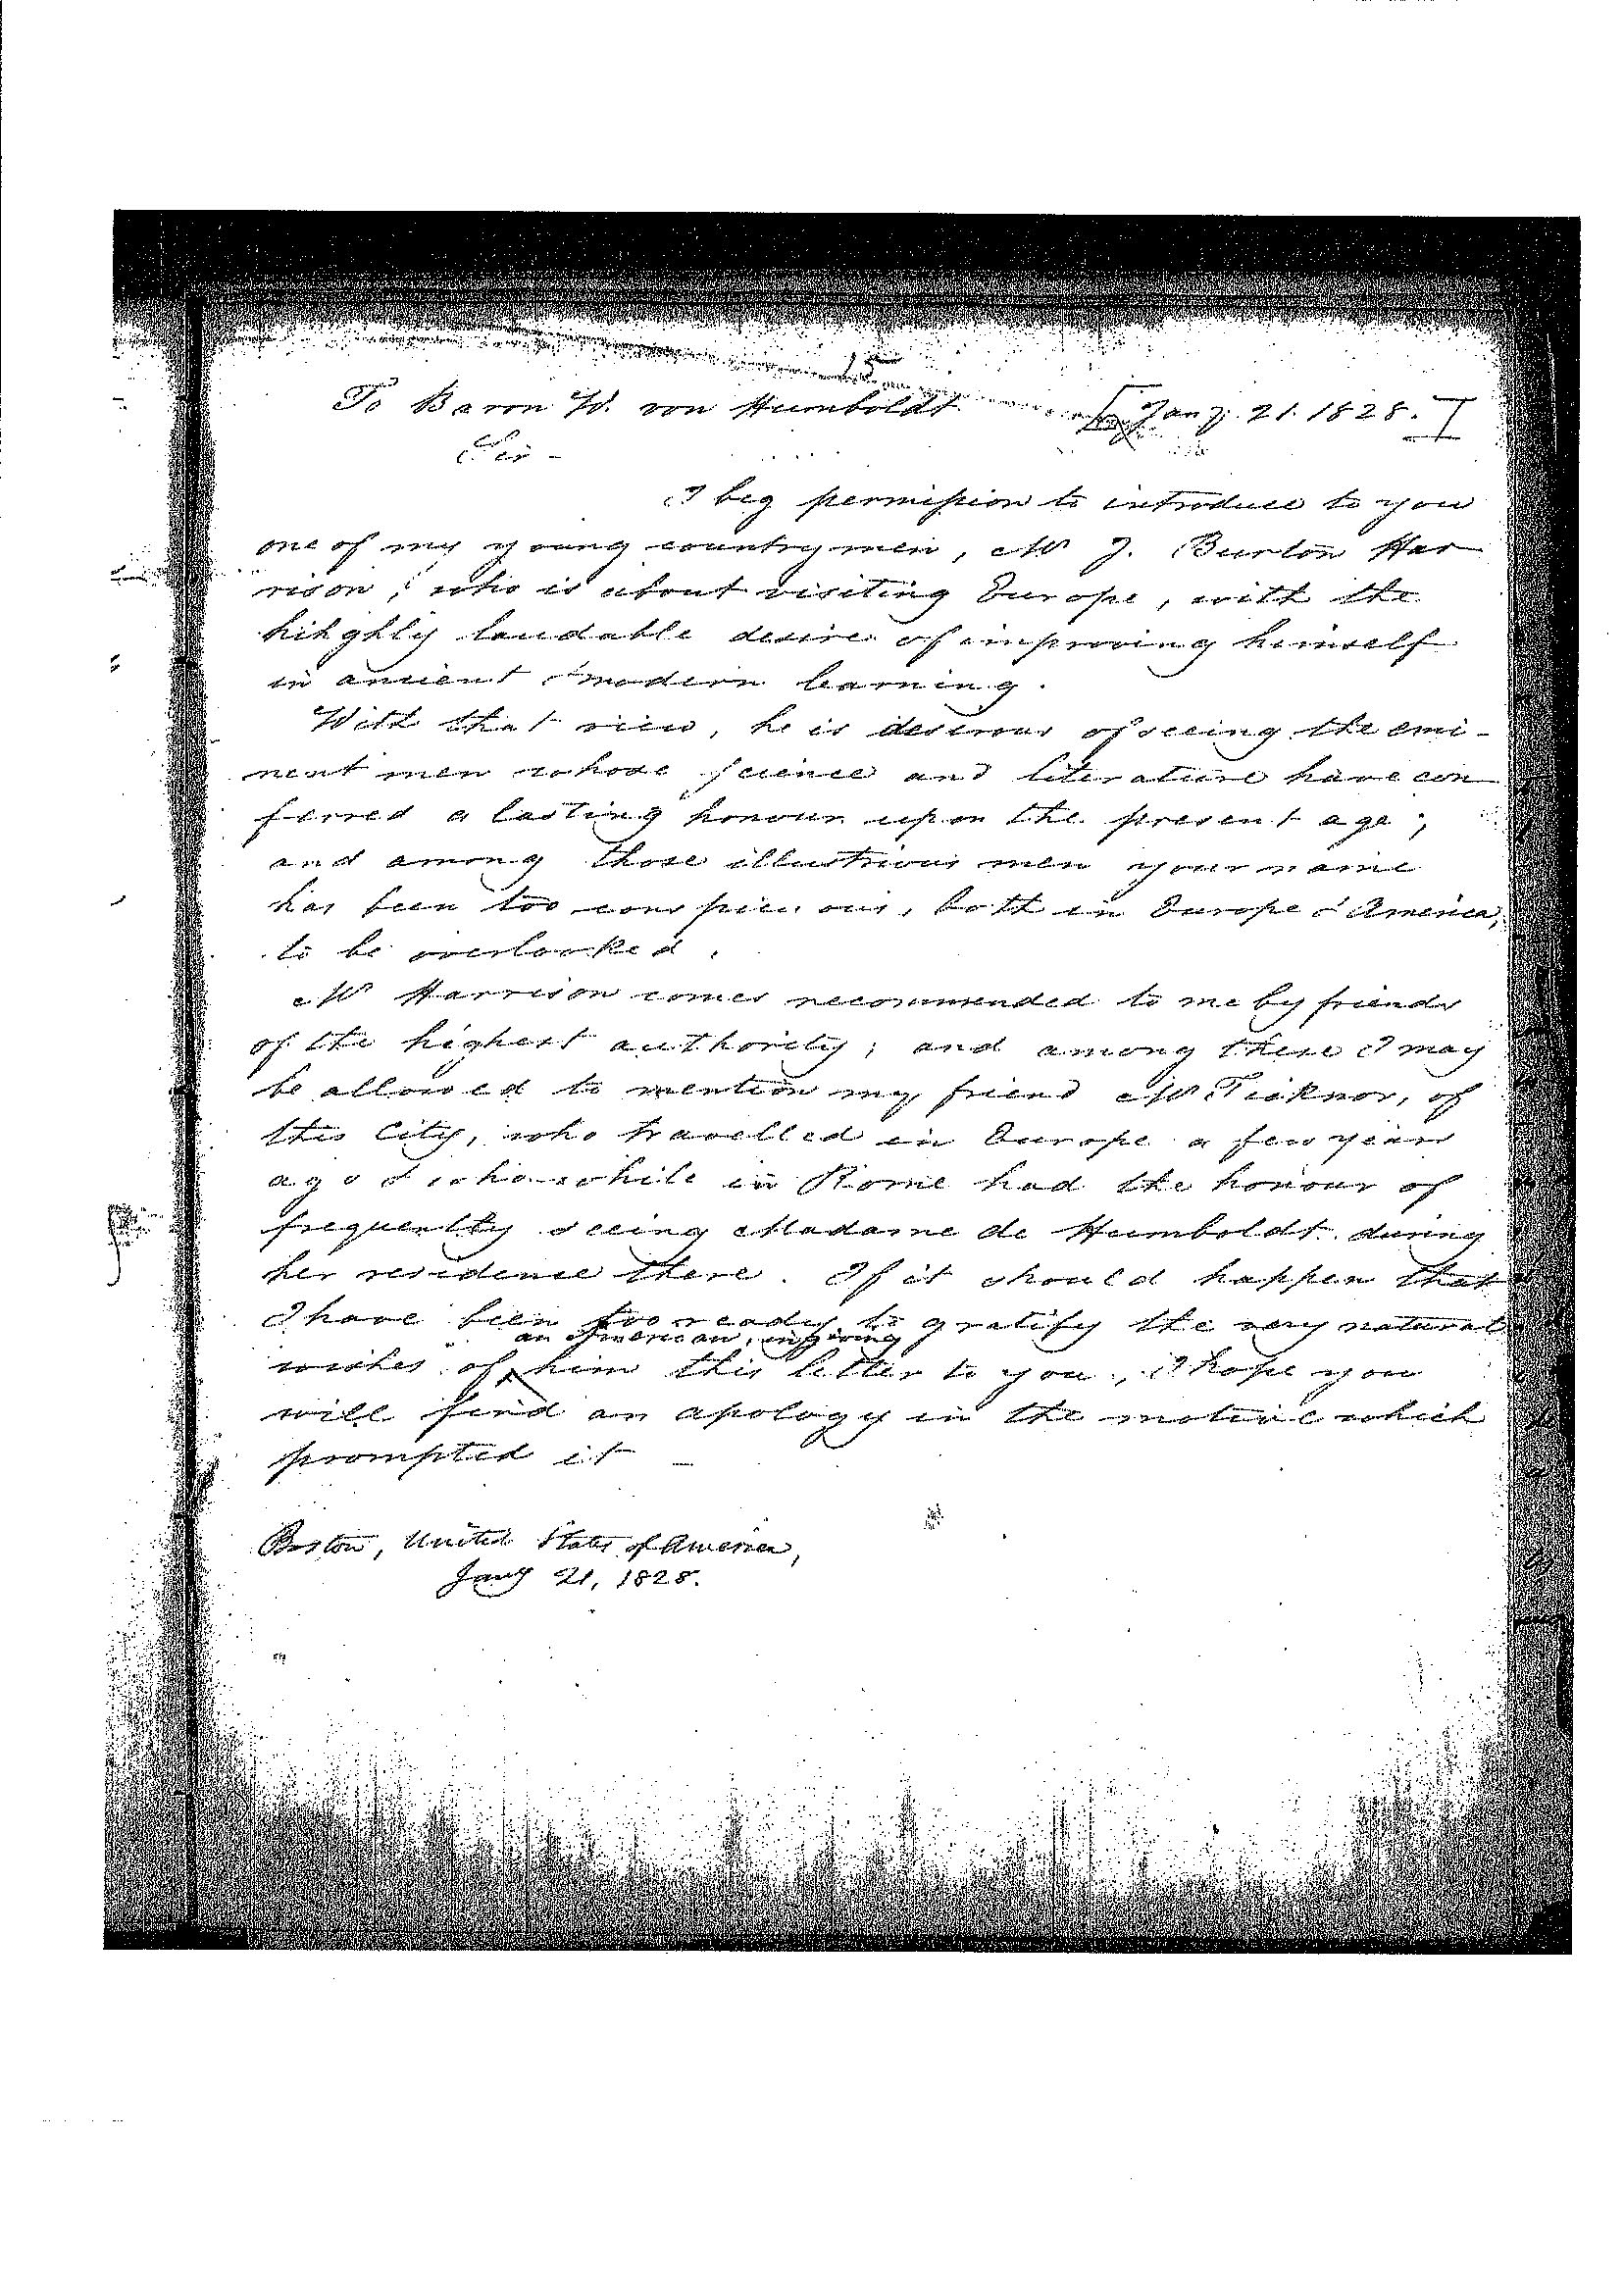 15
To Baron W. von Humboldt [Jany. 21. 1828.]
Sir -
I beg permission to introduce to you
one of my young countrymen, Mr J. Burton Har
rison; who is about visiting Europe, with the
hihghly laudable desire of improving himself
in ancient & modern learning.
With that view, he is desirous of seeing the emi-
nent men whose science and literature have con
ferred a lasting honour upon the present age;
and among those illustrious men your name
has been too conspicuous, both in Europe & America,
to be overlooked.
Mr Harrison comes recommended to me by friends
of the highest authority; and among these I may
be allowed to mention my friend Mr Ticknor, of
this City, who travelled in Europe a few years
ago & who while in Rome had the honour of
frequently seeing Madame de Humboldt during
her residence there. If it should happen that
I have been too ready to gratify the very natural
an American, in giving
wishes of him this letter to you, I hope you
will find an apology in the motive which
prompted it -
Boston, United States of America,
Jany 21, 1828.